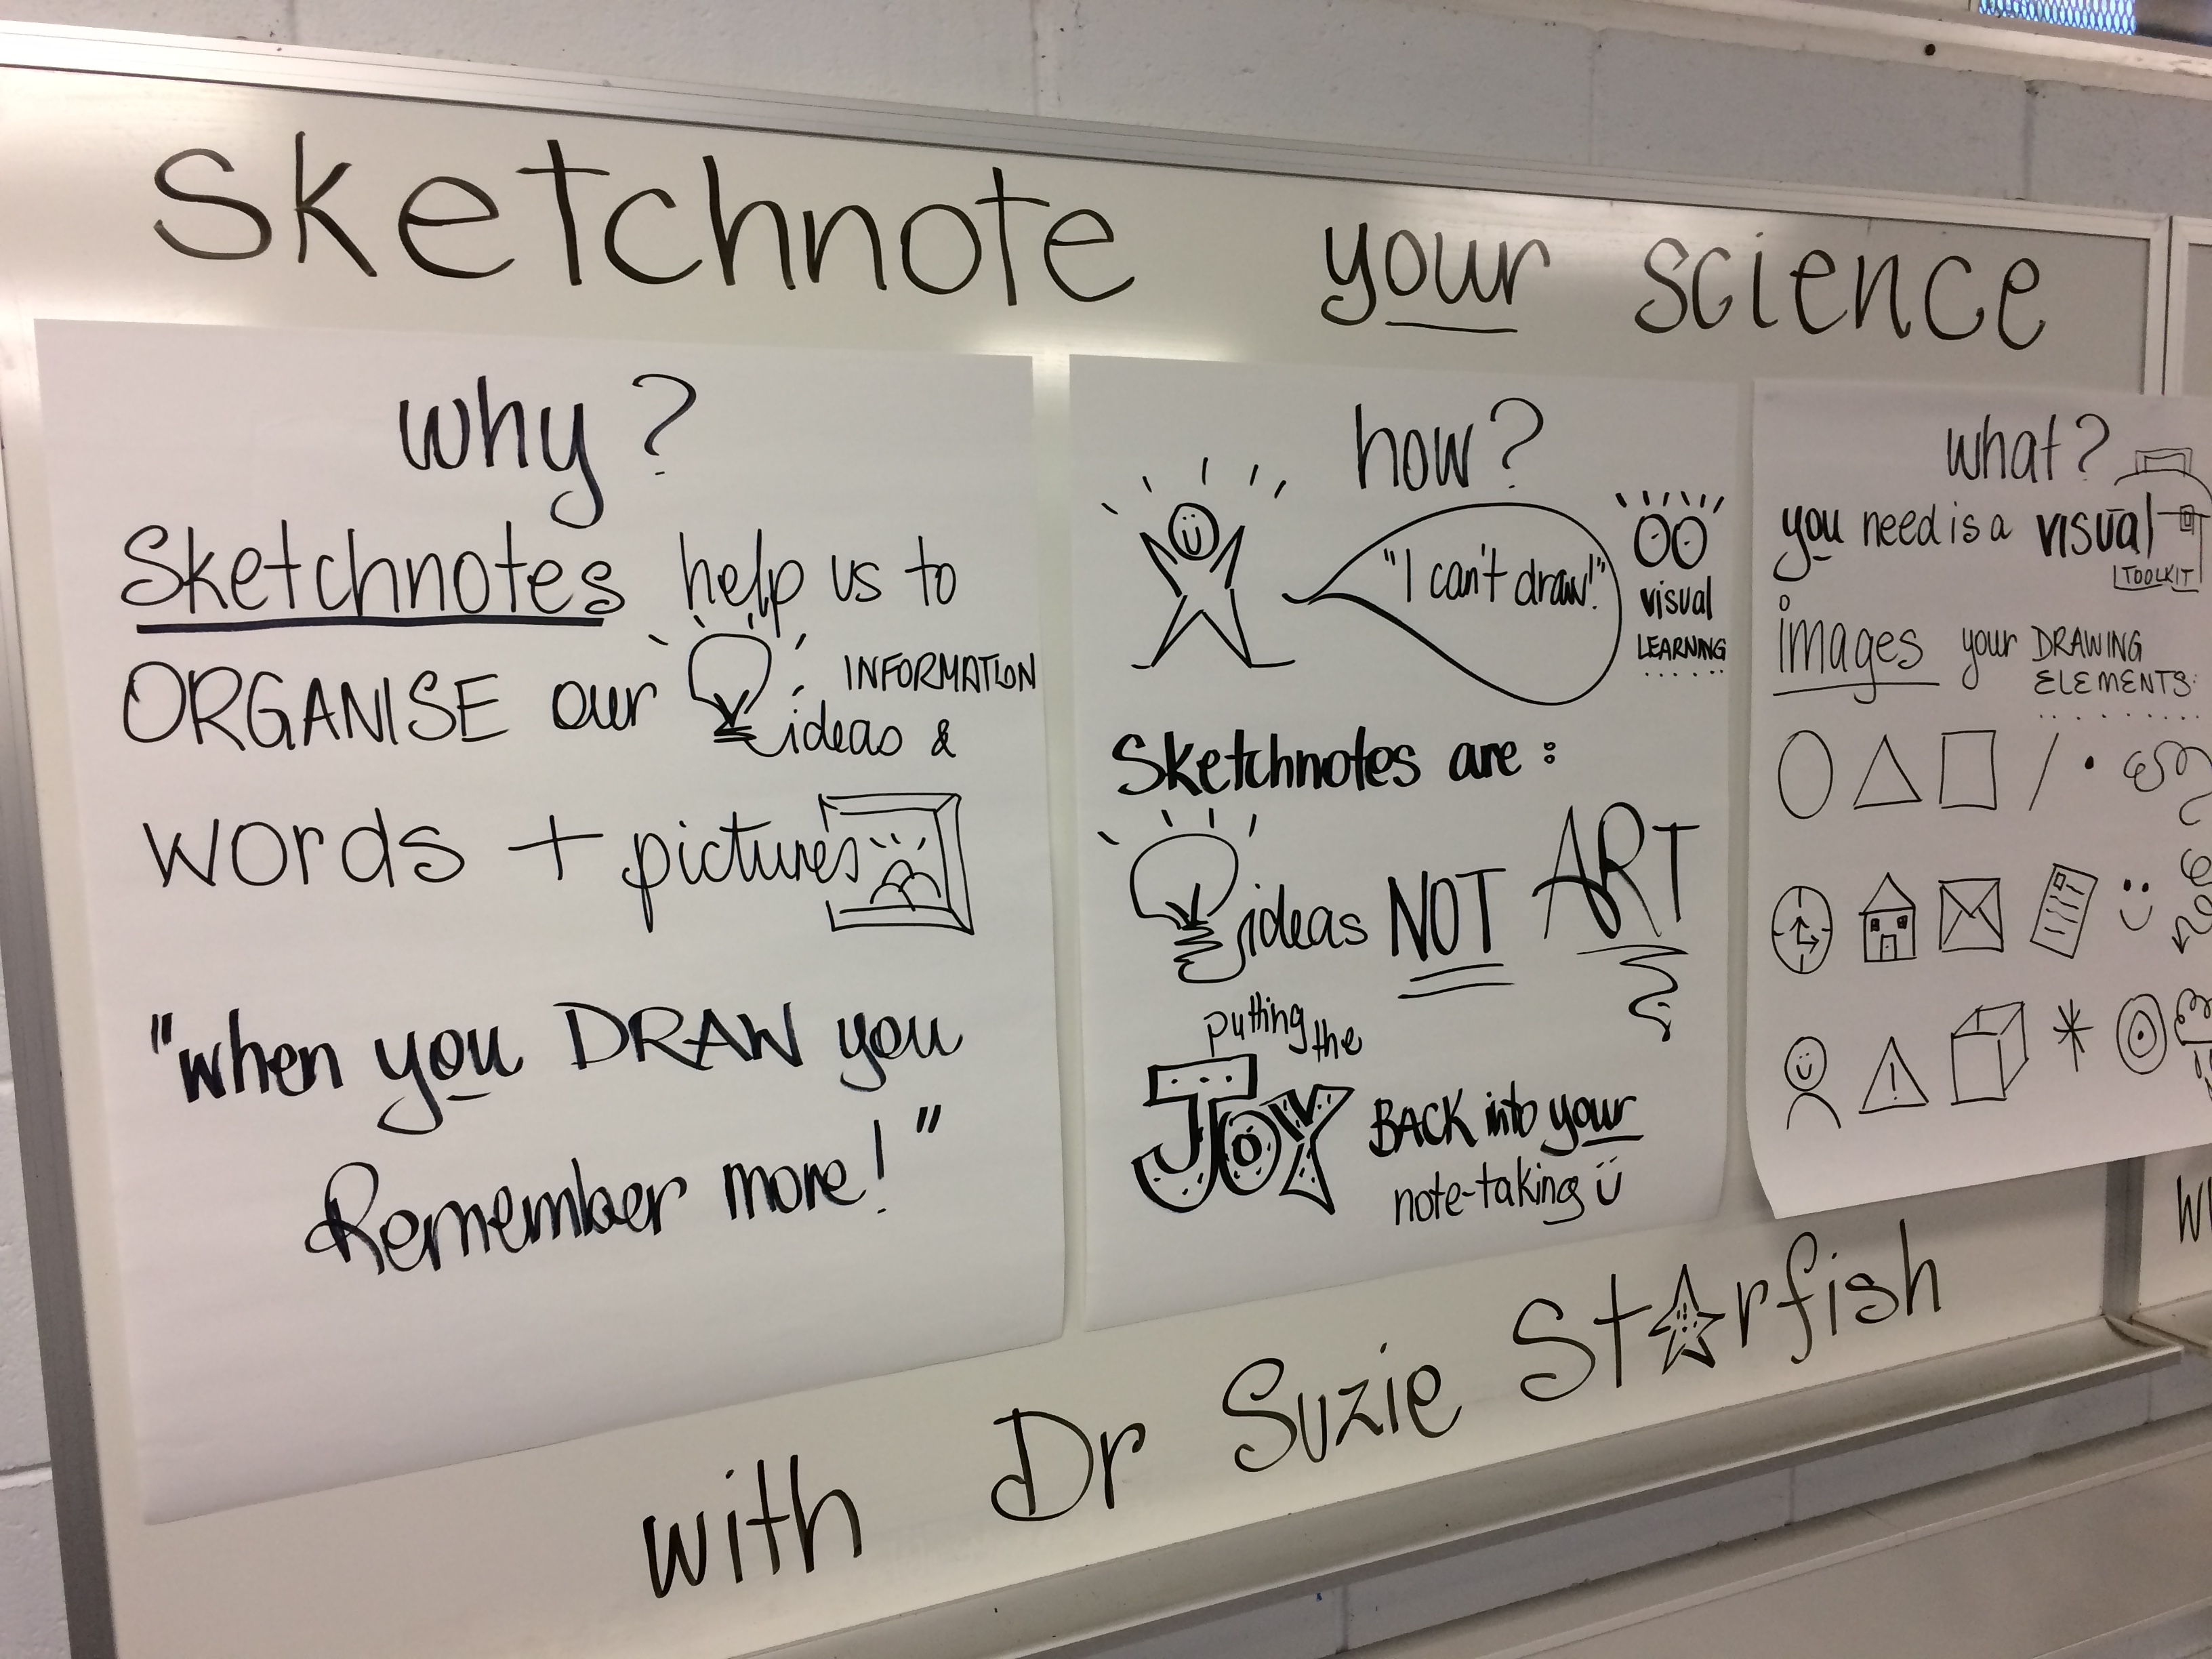 Sketchnote your science
why?
Sketchnotes help us to
ORGANISE our ideas & INFORMATION
words + pictures
"when you DRAW you
Remember more!"
how?
"I can't draw!"
visual
LEARNING
Sketchnotes are:
ideas NOT ART
putting the
JOY BACK into your
note-taking
what?
you need is a visual
TOOLKIT
images your DRAWING
ELEMENTS:
with Dr Suzie Starfish